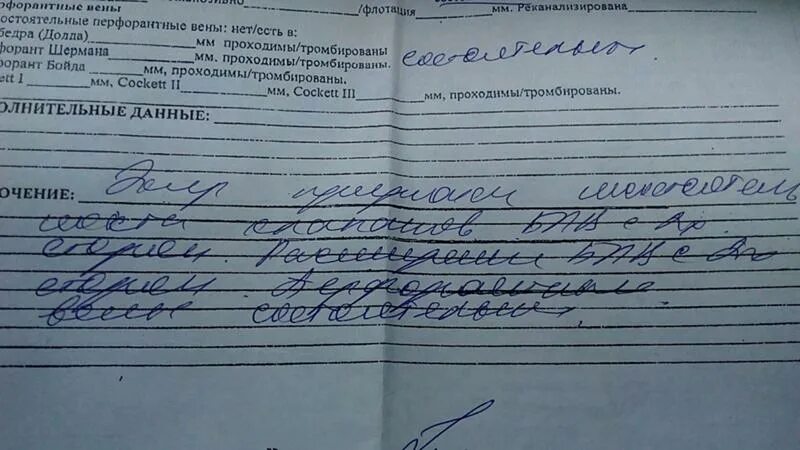 рфорантные вены /флотация мм. Реканализирована
состоятельные перфорантные вены: нет/есть в:
бедра (Додда) мм проходимы/тромбированы
форант Шермана мм. проходимы/тромбированы. состоятельны.
форант Бойда мм, проходимы/тромбированы.
ett I мм, Cockett II мм, Cockett III мм, проходимы/тромбированы.
ОЛНИТЕЛЬНЫЕ ДАННЫЕ:
ЮЧЕНИЕ: Эхо признаки несостоятель
ности клапанов БПВ с 2х
сторон. Расширение БПВ с 2х
сторон. Перфорантные
вены состоятельны.